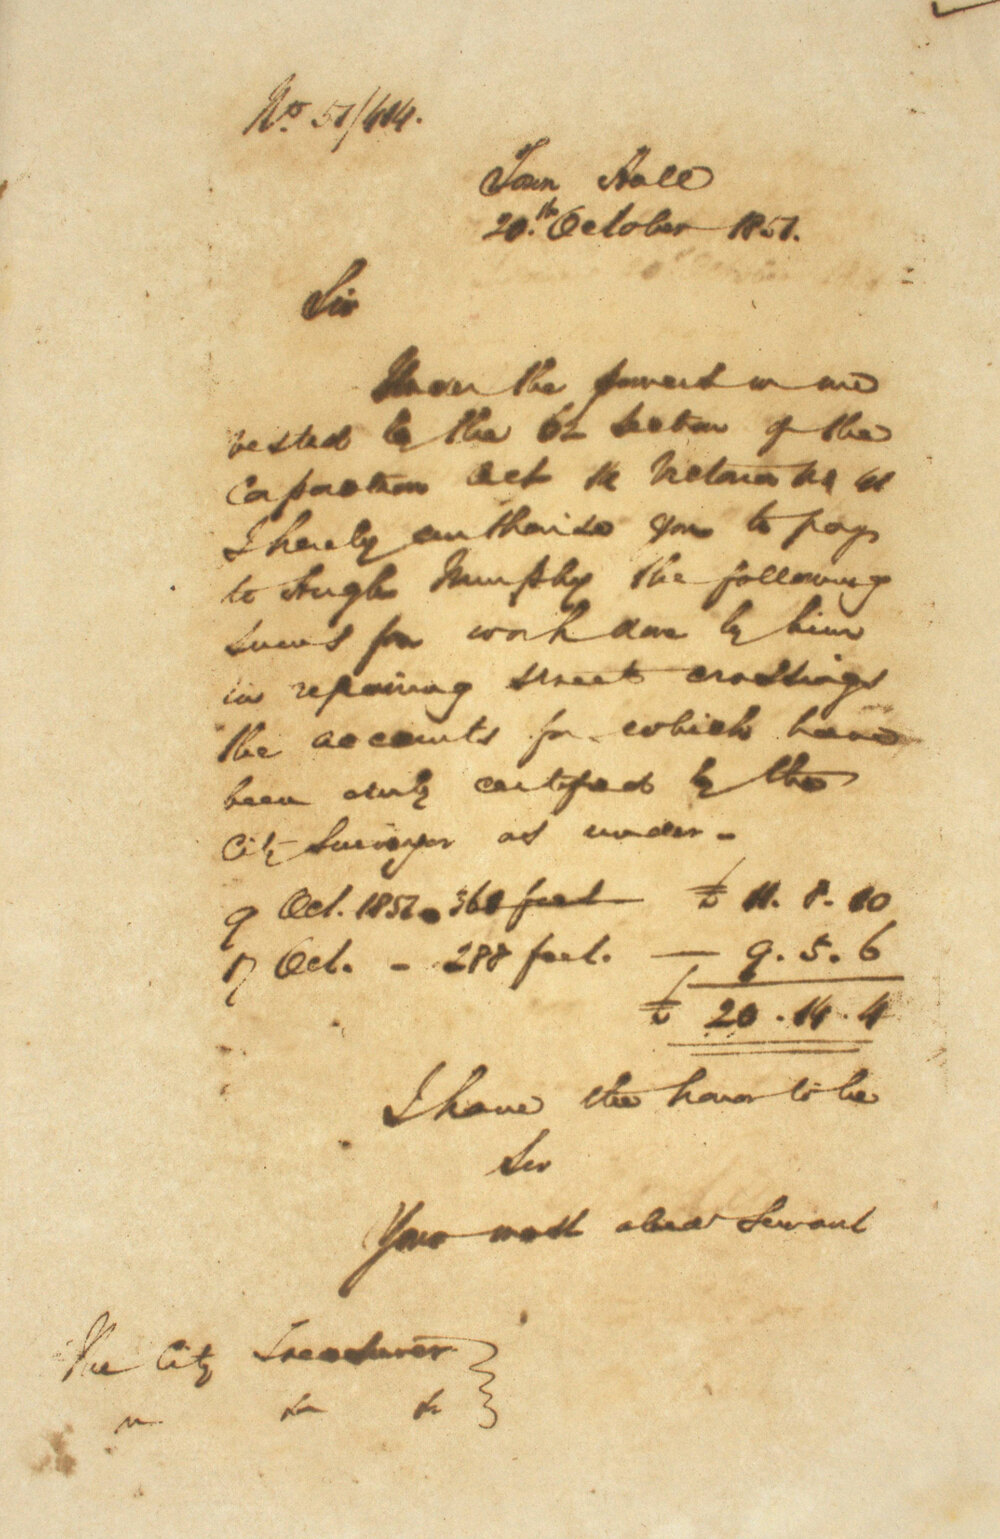 No. 51/414.
Town Hall
20.th October 1851.
Sir
Under the powers in me
vested by the 62 Section of the
Corporation Act 14 Victoria No
I hereby authorise you to pay
to Hugh Murphy the following
sums for work done by him
in repairing street crossings
the accounts for which have
been duly certified by the
City Surveyor as under -
9 Oct. 1851. 360 feet £ 11. 8. 10
17 Oct. - 288 feet. — 9. 5. 6
£ 20. 14. 4
I have the honor to be
Sir
Your most obed Servant
The City Treasurer